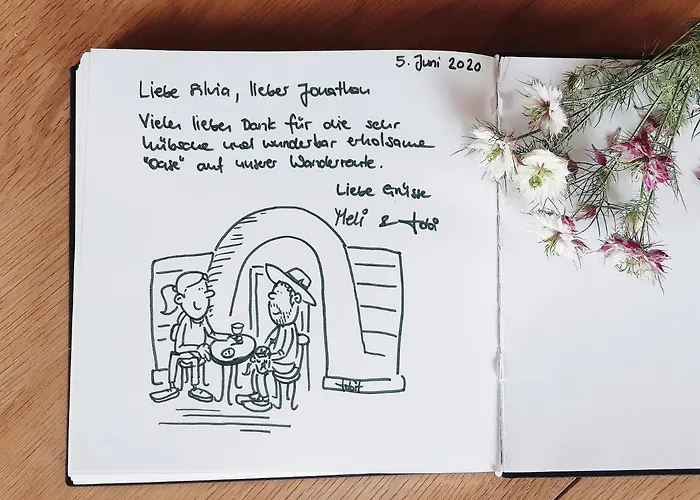 5. Juni 2020
Liebe Silvia, lieber Jonathan
Vielen lieben Dank für die sehr
hübsche und wunderbar erholsame
"Oase" auf unserer Wanderroute.
Liebe Grüsse
Meli & Tobi